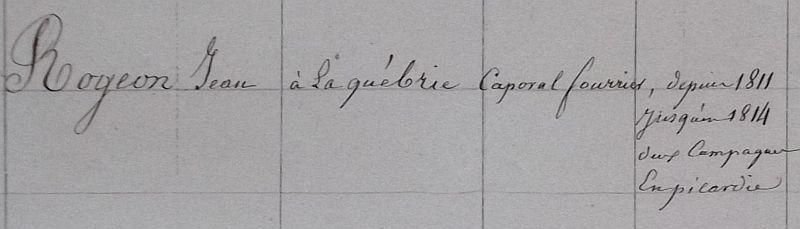 Rogeon Jean à la québrie Caporal fourrier, depuis 1811
Jusqu'en 1814
deux Campagnes
En picardie